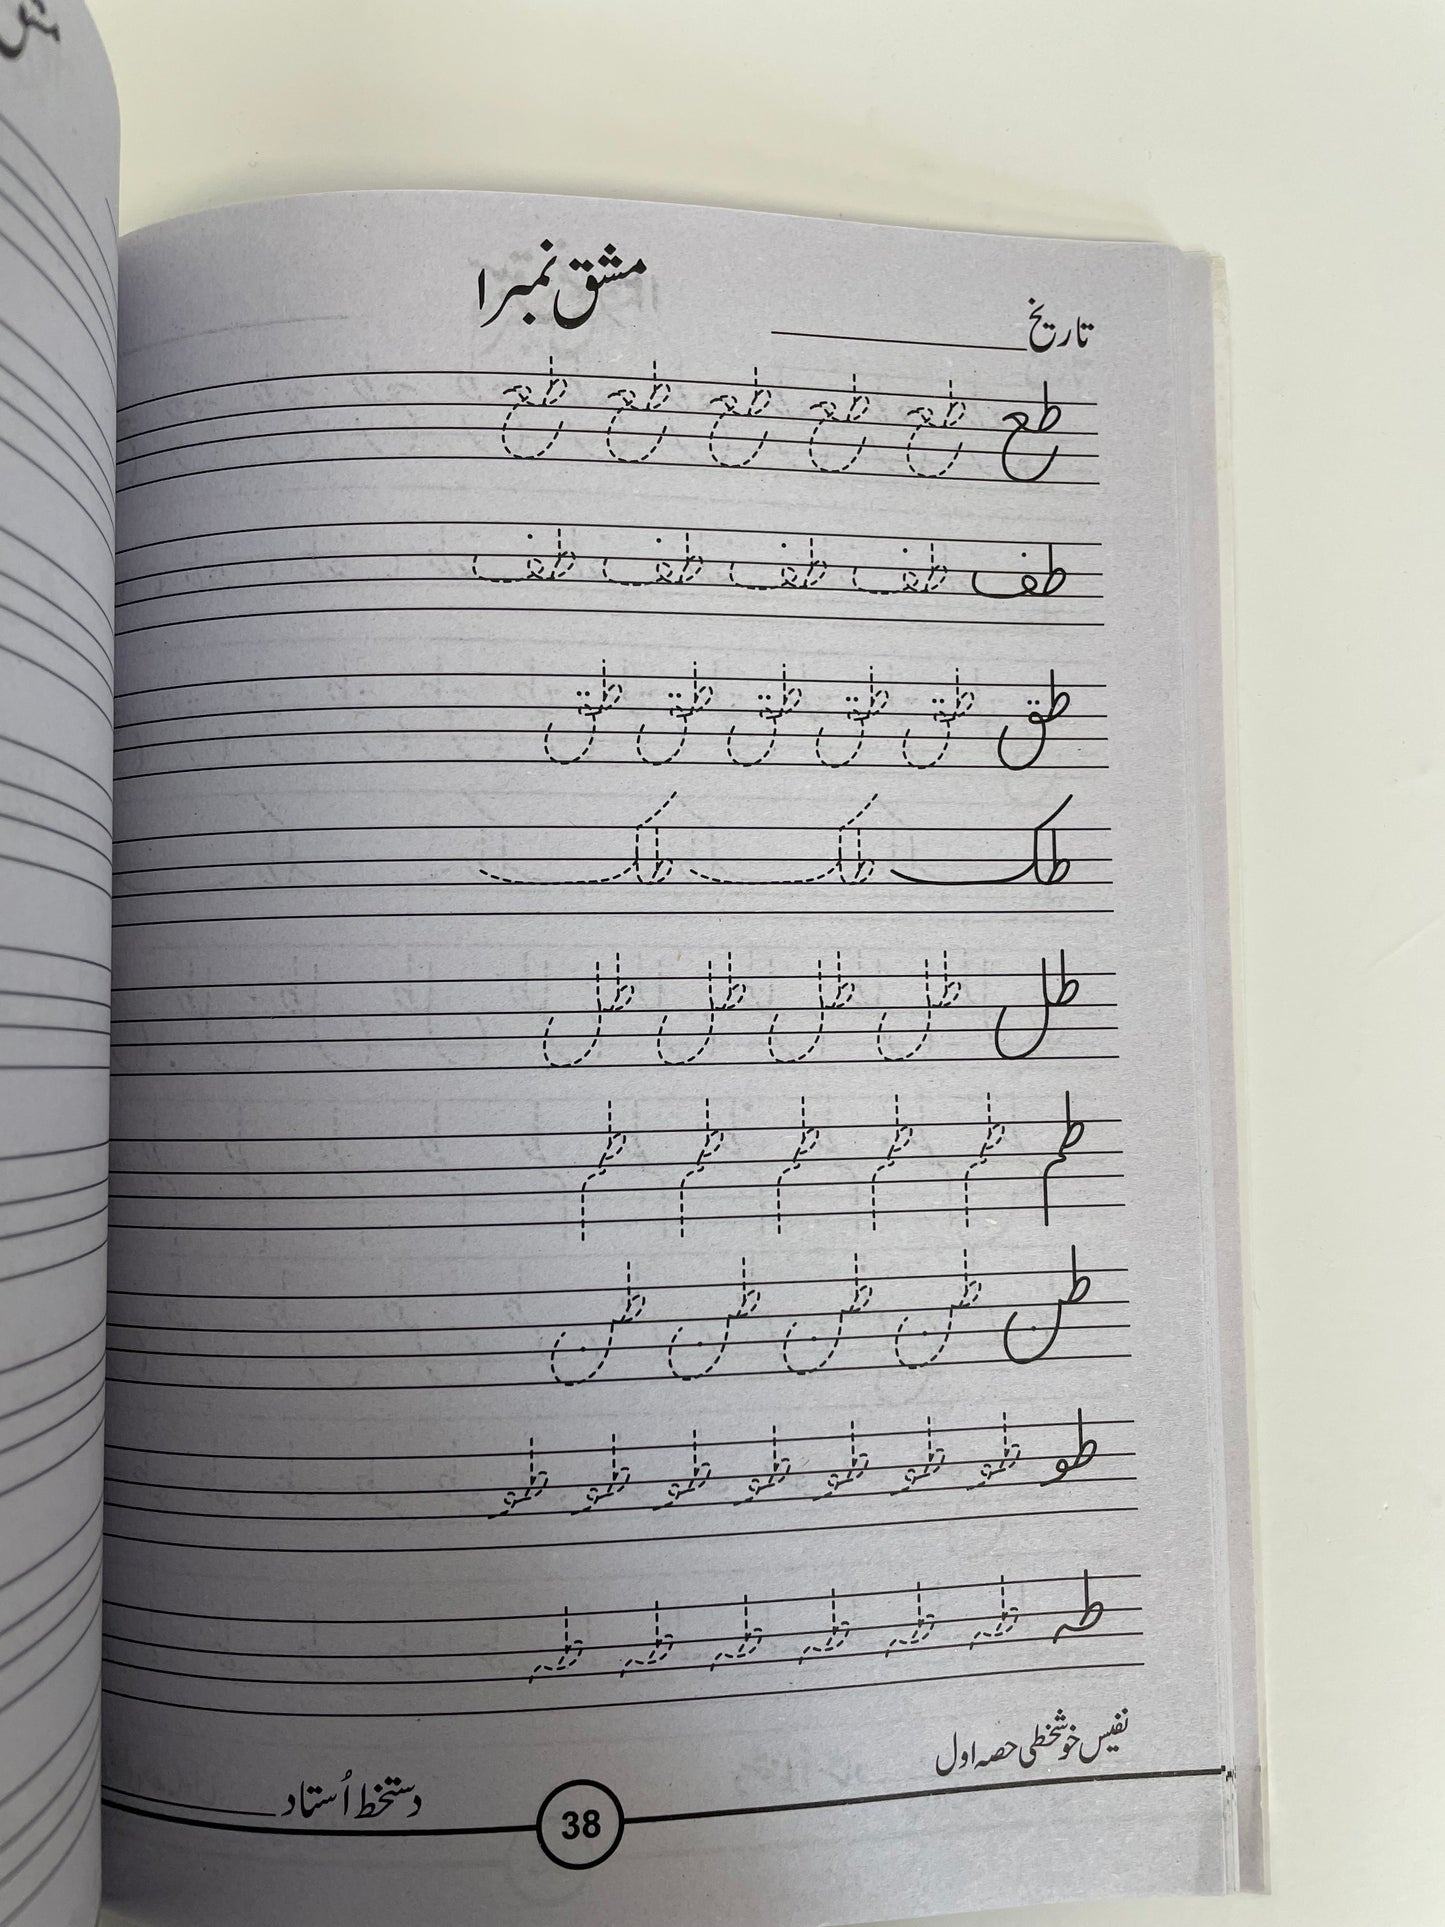 مشق نمبر ا
تاریخ
طع طع طع طع طع طع
طف طف طف طف طف
طق طق طق طق طق طق
طک طک طک
طل طل طل طل طل
طم طم طم طم طم طم
طن طن طن طن طن
طو طو طو طو طو طو طو طو
طہ طہ طہ طہ طہ طہ طہ
نفیس خوشخطی حصہ اول
دستخط اُستاد
38